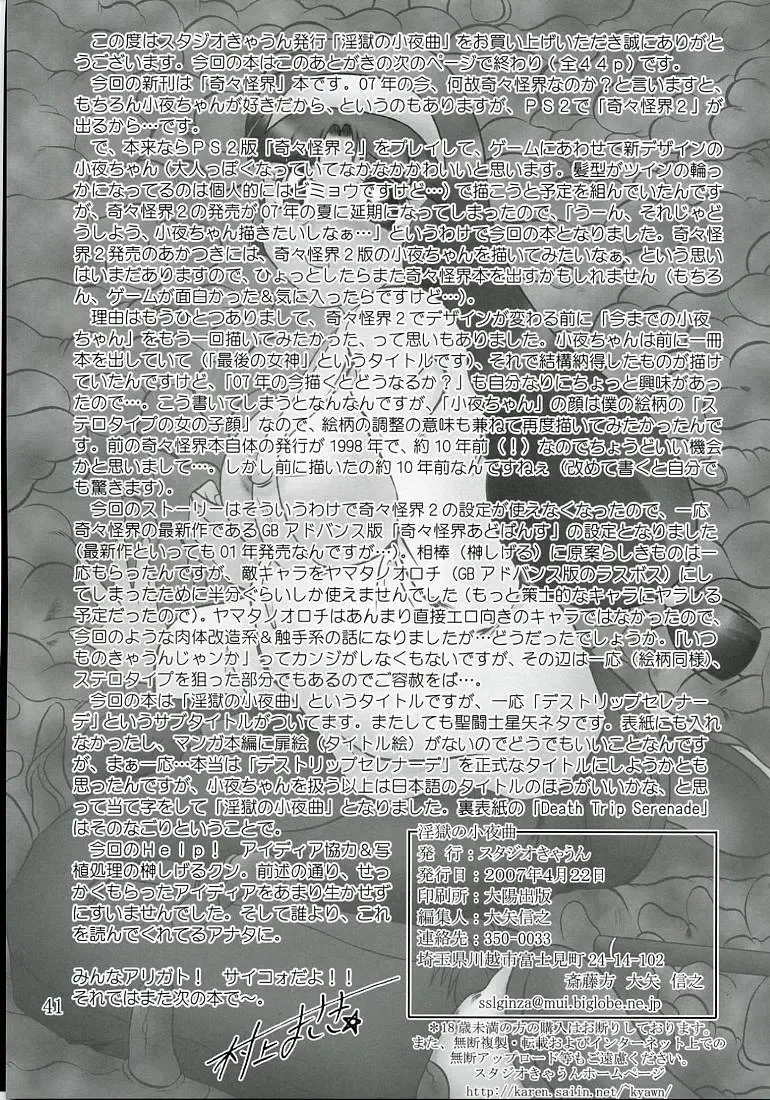 この度はスタジオきゃうん発行「淫獄の小夜曲」をお買い上げいただき誠にありがと
うございます。今回の本はこのあとがきの次のページで終わり(全44p)です。
今回の新刊は「奇々怪界」本です。07年の今、何故奇々怪界なのか?と言いますと、
もちろん小夜ちゃんが好きだから、というのもありますが、PS2で「奇々怪界2」が
出るから…です。
で、本来ならPS2版「奇々怪界2」をプレイして、ゲームにあわせて新デザインの
小夜ちゃん(大人っぽくなっていてなかなかかわいいと思います。髪型がツインの輪っ
かになってるのは個人的にはビミョウですけど…)で描こうと予定を組んでいたんです
が、奇々怪界2の発売が07年の夏に延期になってしまったので、「うーん、それじゃど
うしよう、小夜ちゃん描きたいしなぁ…」というわけで今回の本となりました。奇々怪
界2発売のあかつきには、奇々怪界2版の小夜ちゃんを描いてみたいなぁ、という思い
はいまだありますので、ひょっとしたらまた奇々怪界本を出すかもしれません(もちろ
ん、ゲームが面白かった&気に入ったらですけど…)。
理由はもうひとつありまして、奇々怪界2でデザインが変わる前に「今までの小夜
ちゃん」をもう一回描いてみたかった、って思いもありました。小夜ちゃんは前に一冊
本を出していて(「最後の女神」というタイトルです)、それで結構納得したものが描け
ていたんですけど、「07年の今描くとどうなるか?」も自分なりにちょっと興味があっ
たので…。こう書いてしまうとなんなんですが、「小夜ちゃん」の顔は僕の絵柄の「ス
テロタイプの女の子顔」なので、絵柄の調整の意味も兼ねて再度描いてみたかったんで
す。前の奇々怪界本自体の発行が1998年で、約10年前(!)なのでちょうどいい機会
かと思いまして…。しかし前に描いたの約10年前なんですねぇ(改めて書くと自分で
も驚きます)。
今回のストーリーはそういうわけで奇々怪界2の設定が使えなくなったので、一応
奇々怪界の最新作であるGBアドバンス版「奇々怪界あどばんす」の設定となりました
(最新作といっても01年発売なんですが…)。相棒(榊しげる)に原案らしきものは一
応もらったんですが、敵キャラをヤマタノオロチ(GBアドバンス版のラスボス)にし
てしまったために半分ぐらいしか使えませんでした(もっと策士的なキャラにヤラレる
予定だったので)。ヤマタノオロチはあんまり直接エロ向きのキャラではなかったので、
今回のような肉体改造系&触手系の話になりましたが…どうだったでしょうか。「いつ
ものきゃうんじゃンか」ってカンジがしなくもないですが、その辺は一応(絵柄同様)、
ステロタイプを狙った部分でもあるのでご容赦をば…。
今回の本は「淫獄の小夜曲」というタイトルですが、一応「デストリップセレナー
デ」というサブタイトルがついてます。またしても聖闘士星矢ネタです。表紙にも入れ
なかったし、マンガ本編に扉絵(タイトル絵)がないのでどうでもいいことなんです
が、まぁ一応…本当は「デストリップセレナーデ」を正式なタイトルにしようかとも
思ったんですが、小夜ちゃんを扱う以上は日本語のタイトルのほうがいいかな、と思
って当て字をして「淫獄の小夜曲」となりました。裏表紙の「Death Trip Serenade」
はそのなごりということで。
今回のHelp! アイディア協力&写
植処理の榊しげるクン。前述の通り、せっ
かくもらったアイディアをあまり生かせず
にすいませんでした。そして誰より、これ
を読んでくれてるアナタに。
みんなアリガト! サイコォだよ!!
それではまた次の本で～。
村上まさき☆
41
淫獄の小夜曲
発行:スタジオきゃうん
発行日:2007年4月22日
印刷所:大陽出版
編集人:大矢信之
連絡先:350-0033
埼玉県川越市富士見町24-14-102
斎藤方 大矢 信之
sslginza@mui.biglobe.ne.jp
*18歳未満の方の購入はお断りしております。
また、無断複製・転載およびインターネット上での
無断アップロード等もご遠慮ください。
スタジオきゃうんホームページ
http://karen.saiin.net/~kyawn/